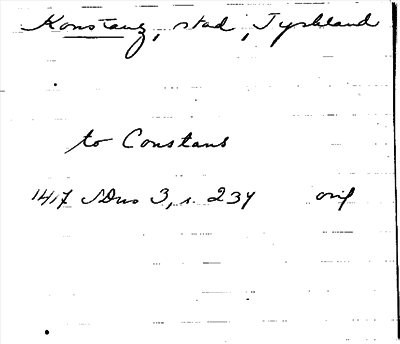 Konstanz, stad, Tyskland
to Constans
1417 SDns 3, s. 237 orig